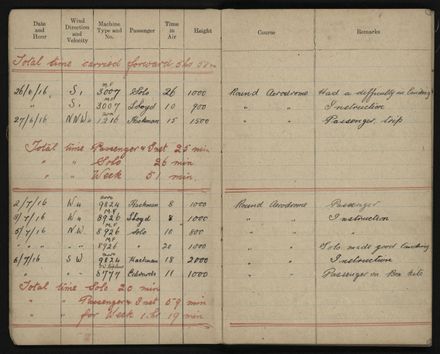 Date and Hour Wind Direction and Velocity Machine Type and No. Passenger Time in Air Height Course Remarks
Total time carried forward 5 hrs
26/6/16 S1 MF 3007 Solo 26 1000 Round Aerodrome Had a difficulty in landing
" S1 MF 3007 Lloyd 10 900 " " Instruction
27/6/16 NNW 1216 15 1500 " " Passenger trip
Total time Passenger & Inst 25 min
" " Solo 26 min
" " Week 51 min.
2/7/16 W4 9824 8 1000 Round Aerodrome Passenger
5/7/16 W4 MF 8926 Lloyd 8 1000 " " Instruction
5/7/16 NW MF 8926 Solo 10 800 " " "
" " " MF 8926 " 20 1000 " " Solo. made good landing
6/7/16 SW 9824 18 2000 " " Instruction
" - - 5777 Edwards 11 1000 Passenger in Box kite
Total time Solo 20 min
" " Passenger & Inst 59 min
" " for Week 1 hr 19 min